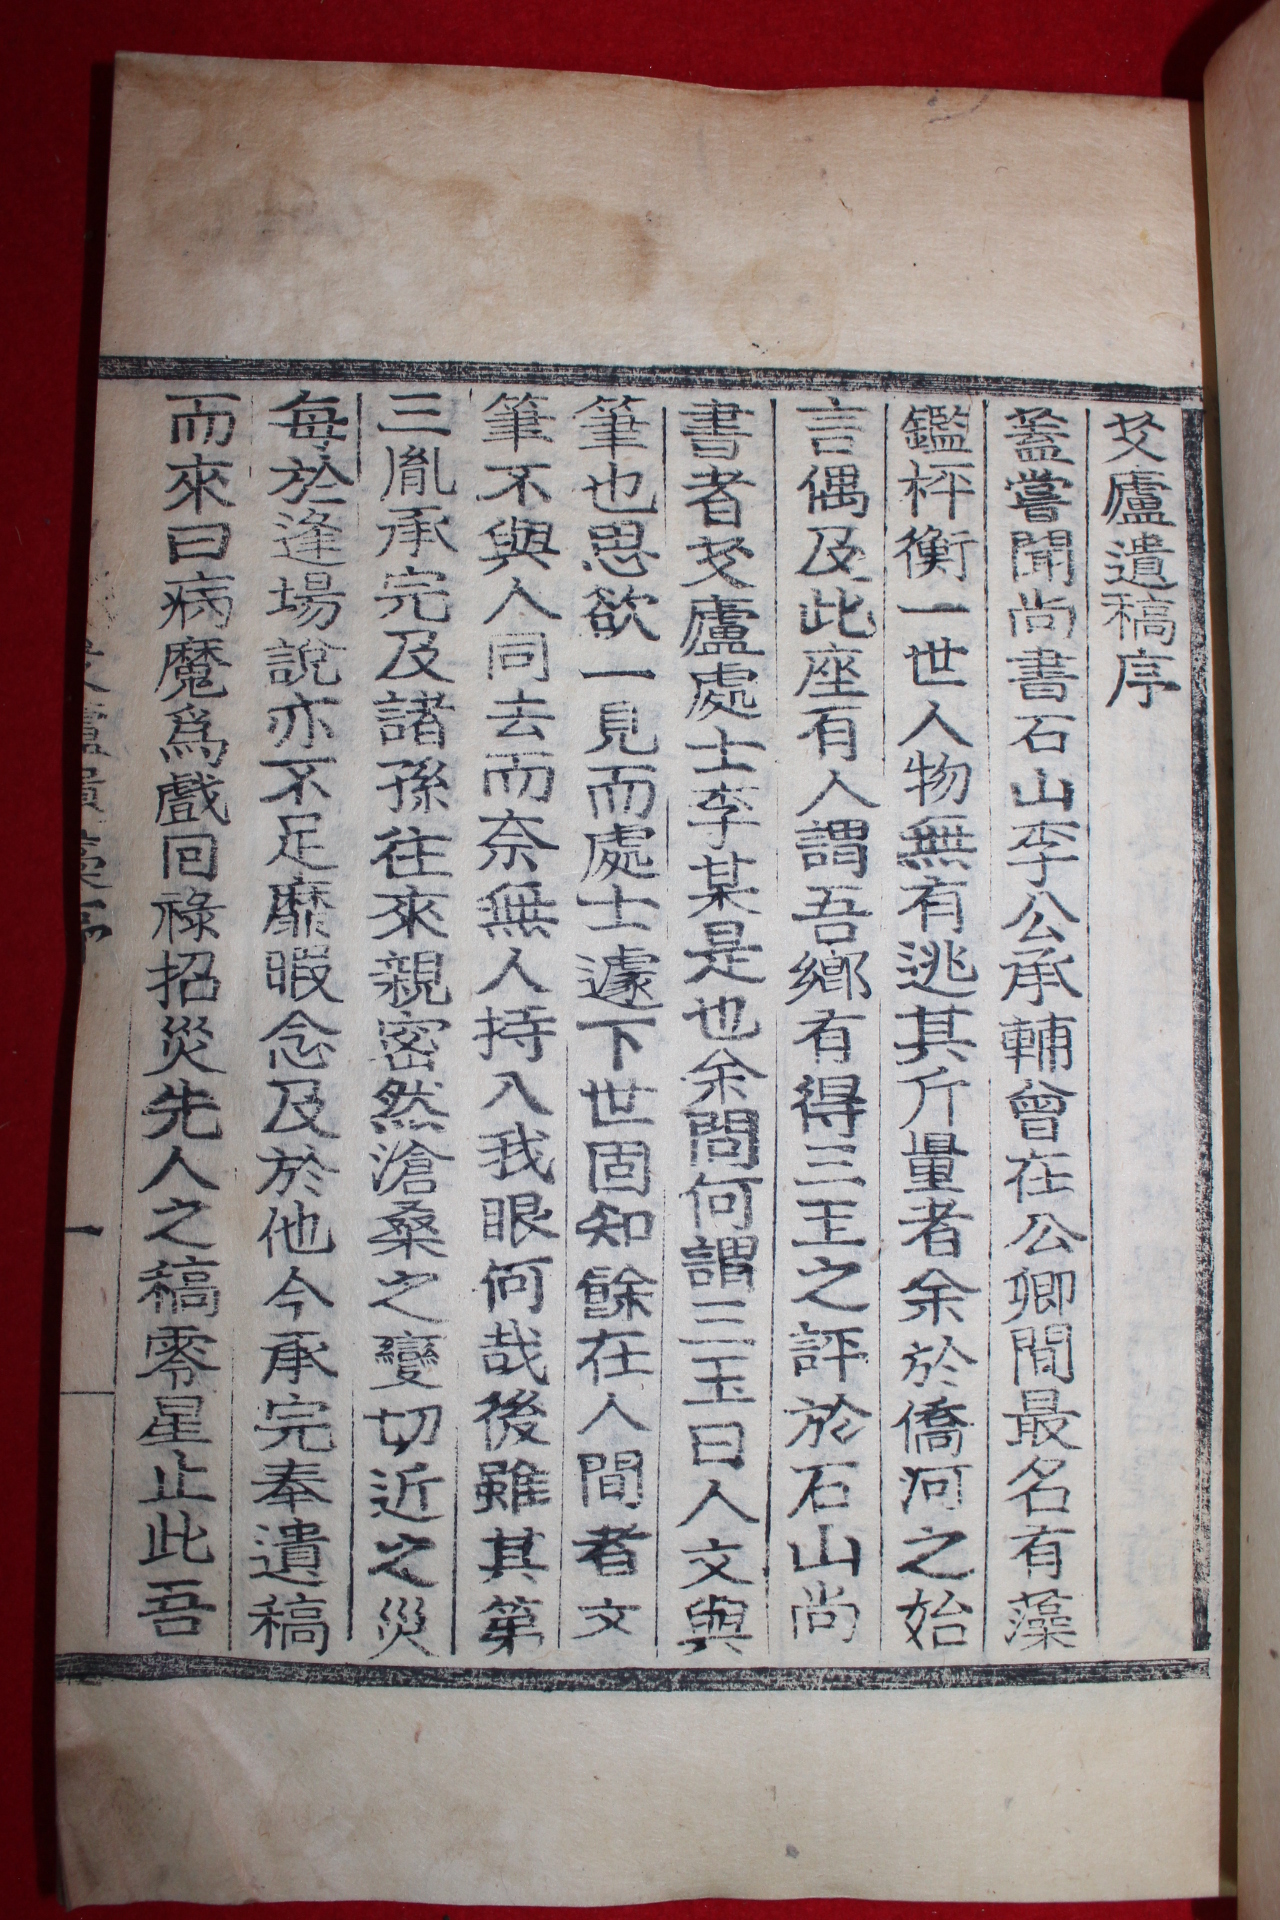 艾廬遺稿序
蓋嘗聞尚書石山李公承輔曾在公卿間最名有藻
鑑枰衡一世人物無有逃其斤量者余於僑河之始
言偶及此座有人謂吾鄉有得三王之評於石山尚
書者艾廬處士李某是也余問何謂三玉曰人文與
筆也思欲一見而處士遽下世固知餘在人間者文
筆不與人同去而奈無人持入我眼何哉後雖其第
三胤承完及諸孫往來親密然滄桑之變切近之災
每於逢場說亦不足靡暇念及於他今承完奉遺稿
而來曰病魔爲戲回祿招災先人之稿零星止此吾
艾廬遺稿序
一